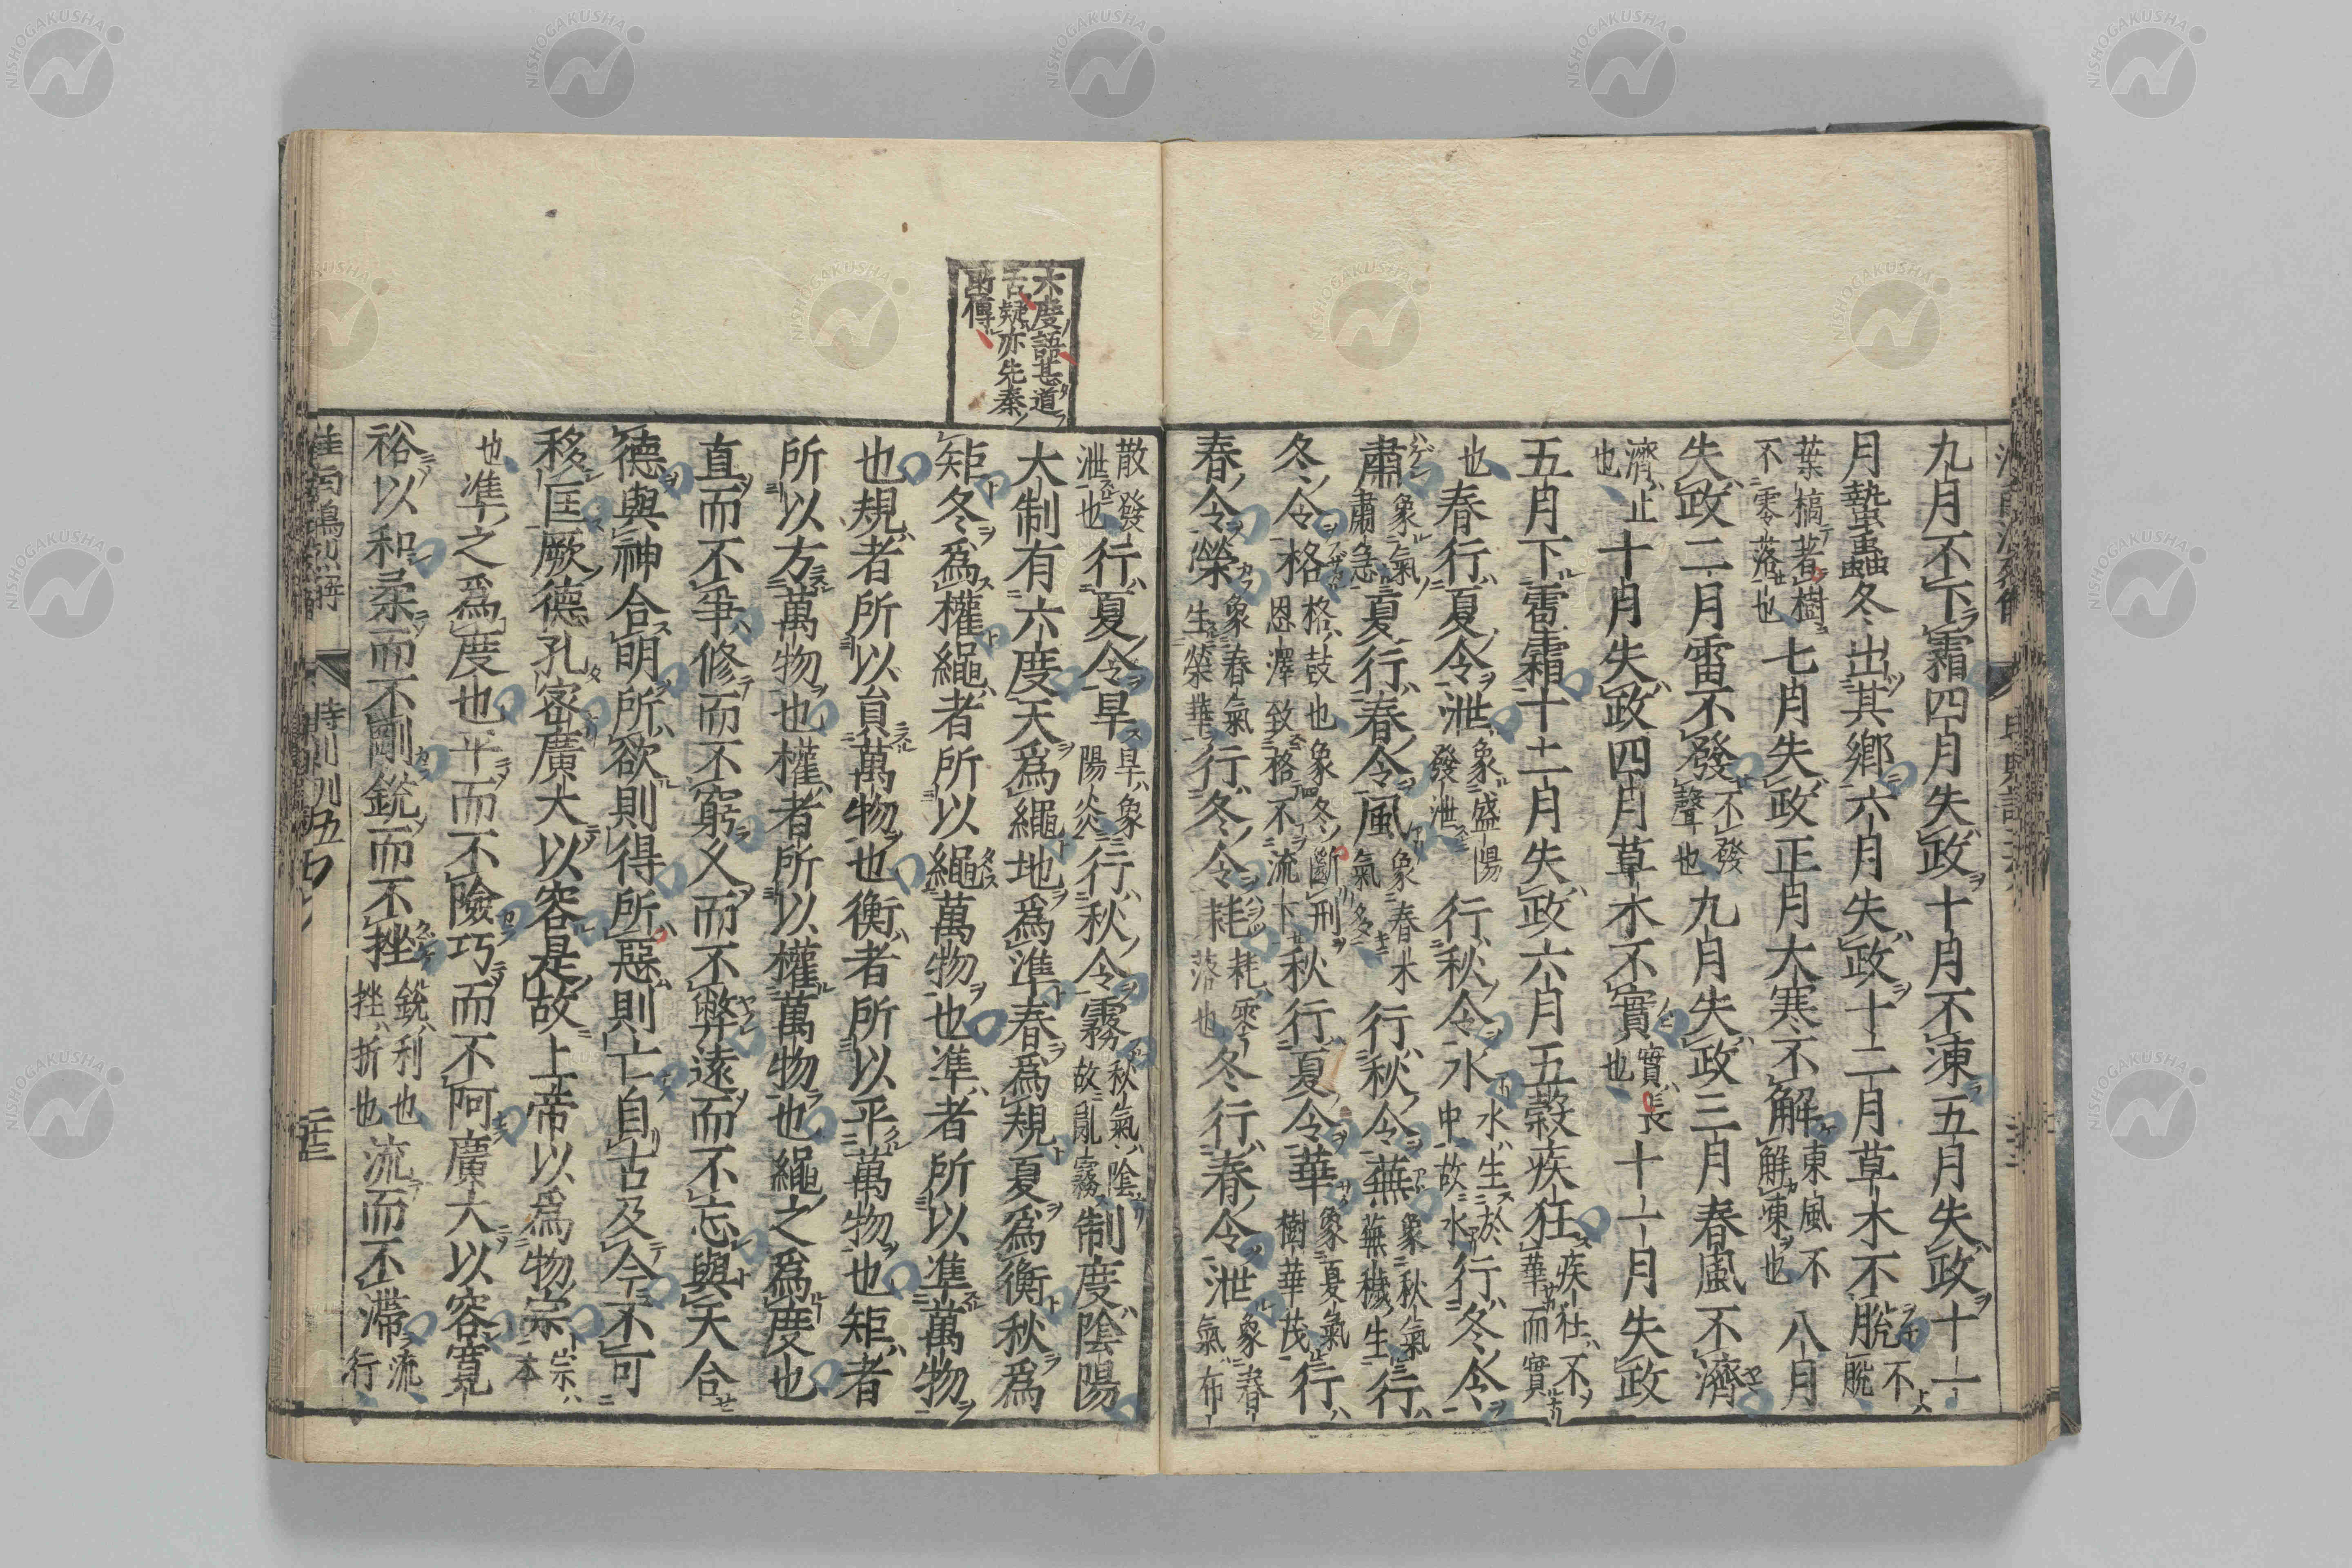 九月不下霜四月失政十月不凍五月失政十一
月蟄蟲冬出其鄉六月失政十二月草木不脫不脫
葉槁著樹不零落也七月失政正月大寒不解東風不解凍也八月
失政二月雷不發不發聲也九月失政三月春風不濟
濟止也十月失政四月草木不實實長也十一月失政
五月下雹霜十二月失政六月五穀疾狂疾狂不華而實
也春行夏令泄象盛陽發泄行秋令水水生於申故水行冬令
肅象氣肅急夏行春令風象春木氣多行秋令蕪象秋氣蕪穢生行
冬令格格鼓也象冬斷刑恩澤致格不流下秋行夏令華象夏氣樹華茂行
春令榮象春氣生榮華行冬令耗耗零落也冬行春令泄象春氣布
散發泄也行夏令旱旱象陽炎行秋令霧秋氣陰故亂霧制度陰陽
大制有六度天爲繩地爲準春爲規夏爲衡秋爲
矩冬爲權繩者所以繩萬物也準者所以準萬物
也規者所以員萬物也衡者所以平萬物也矩者
所以方萬物也權者所以權萬物也繩之爲度也
直而不爭修而不窮久而不弊遠而不忘與天合
德與神合明所欲則得所惡則亡自古及今不可
移匡厥德孔密廣大以容是故上帝以爲物宗宗本
也準之爲度也平而不險巧而不阿廣大以容寬
裕以和柔而不剛銳而不挫銳利也挫折也流而不滯流行
六度語甚道
古疑亦先秦
所傳
時則訓五
二十三
NISHOGAKUSHA